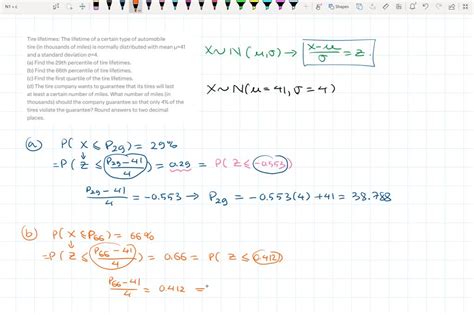 Tire lifetimes: The lifetime of a certain type of automobile
tire (in thousands of miles) is normally distributed with mean μ=41
and a standard deviation σ=4.
(a) Find the 29th percentile of tire lifetimes.
(b) Find the 66th percentile of tire lifetimes.
(c) Find the first quartile of the tire lifetimes.
(d) The tire company wants to guarantee that its tires will last
at least a certain number of miles. What number of miles (in
thousands) should the company guarantee so that only 4% of the
tires violate the guarantee? Round answers to two decimal
places.
X~N(μ,σ) → x-μ/σ = z.
X~N(μ=41, σ=4)
(a) P( X ≤ P29) = 29%
=P( Z ≤ P29-41/4 ) = 0.29 = P( Z ≤ -0.553)
P29-41/4 = -0.553 → P29 = -0.553(4)+41 = 38.788
(b) P( X ≤ P66) = 66%
=P( Z ≤ P66-41/4 ) = 0.66 = P( Z ≤ 0.412)
P66-41/4 = 0.412 =